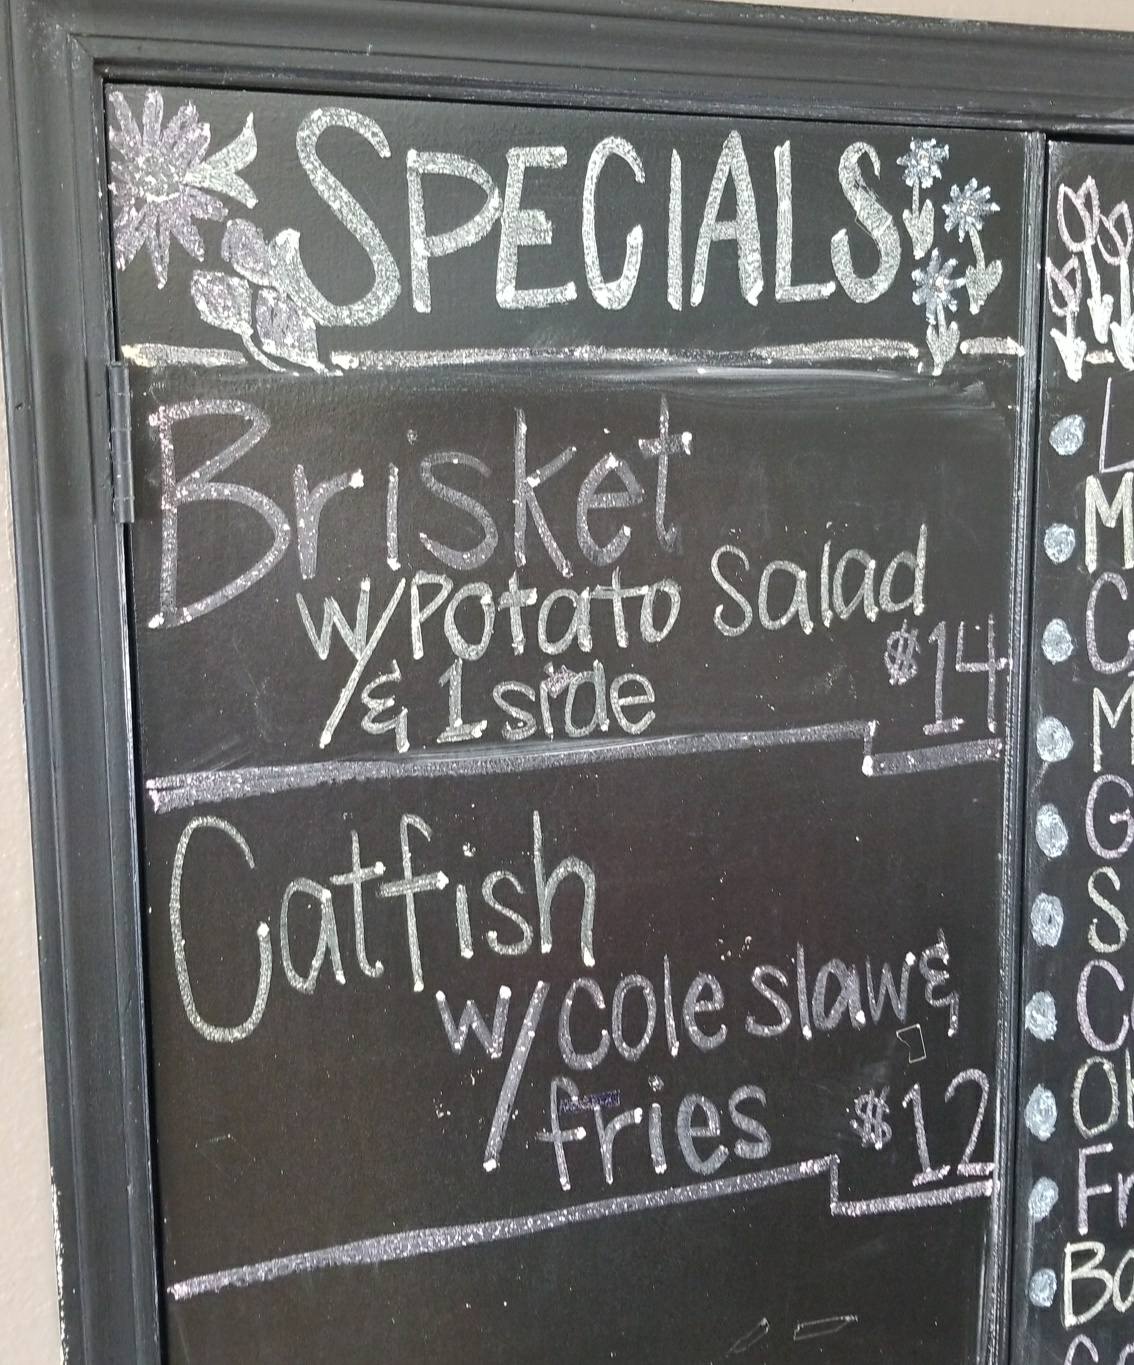 SPECIALS
Brisket
w/Potato Salad
& 1 side $14
Catfish
w/Cole slaw &
fries $12